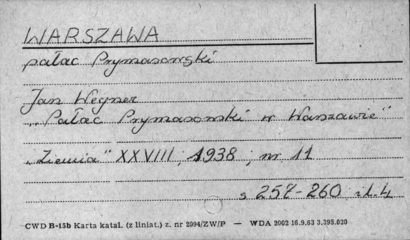 WARSZAWA
pałac Prymasowski
Jan Wegner
„Pałac Prymasowski w Warszawie"
„Ziemia" XXVIII, 1938, nr 11
s 257-260, il. 4
CWD B-15b Karta katal. (z liniat.) z. nr 2094/ZW/P — WDA 2002 16.9.63 3.395.620